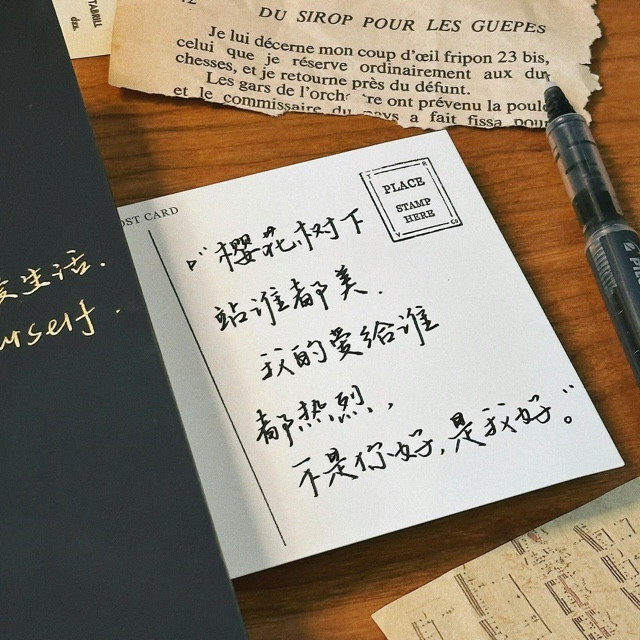 DU SIROP POUR LES GUEPES
Je lui décerne mon coup d'œil fripon 23 bis,
celui que je réserve ordinairement aux du
chesses, et je retourne près du défunt.
Les gars de l'orch re ont prévenu la poule
et le commissaire du pays a fait fissa pour
OST CARD
PLACE
STAMP
HERE
“樱花树下
站谁都美.
我的爱给谁
都热烈,
不是你好,是我好”。
生活.
urself.